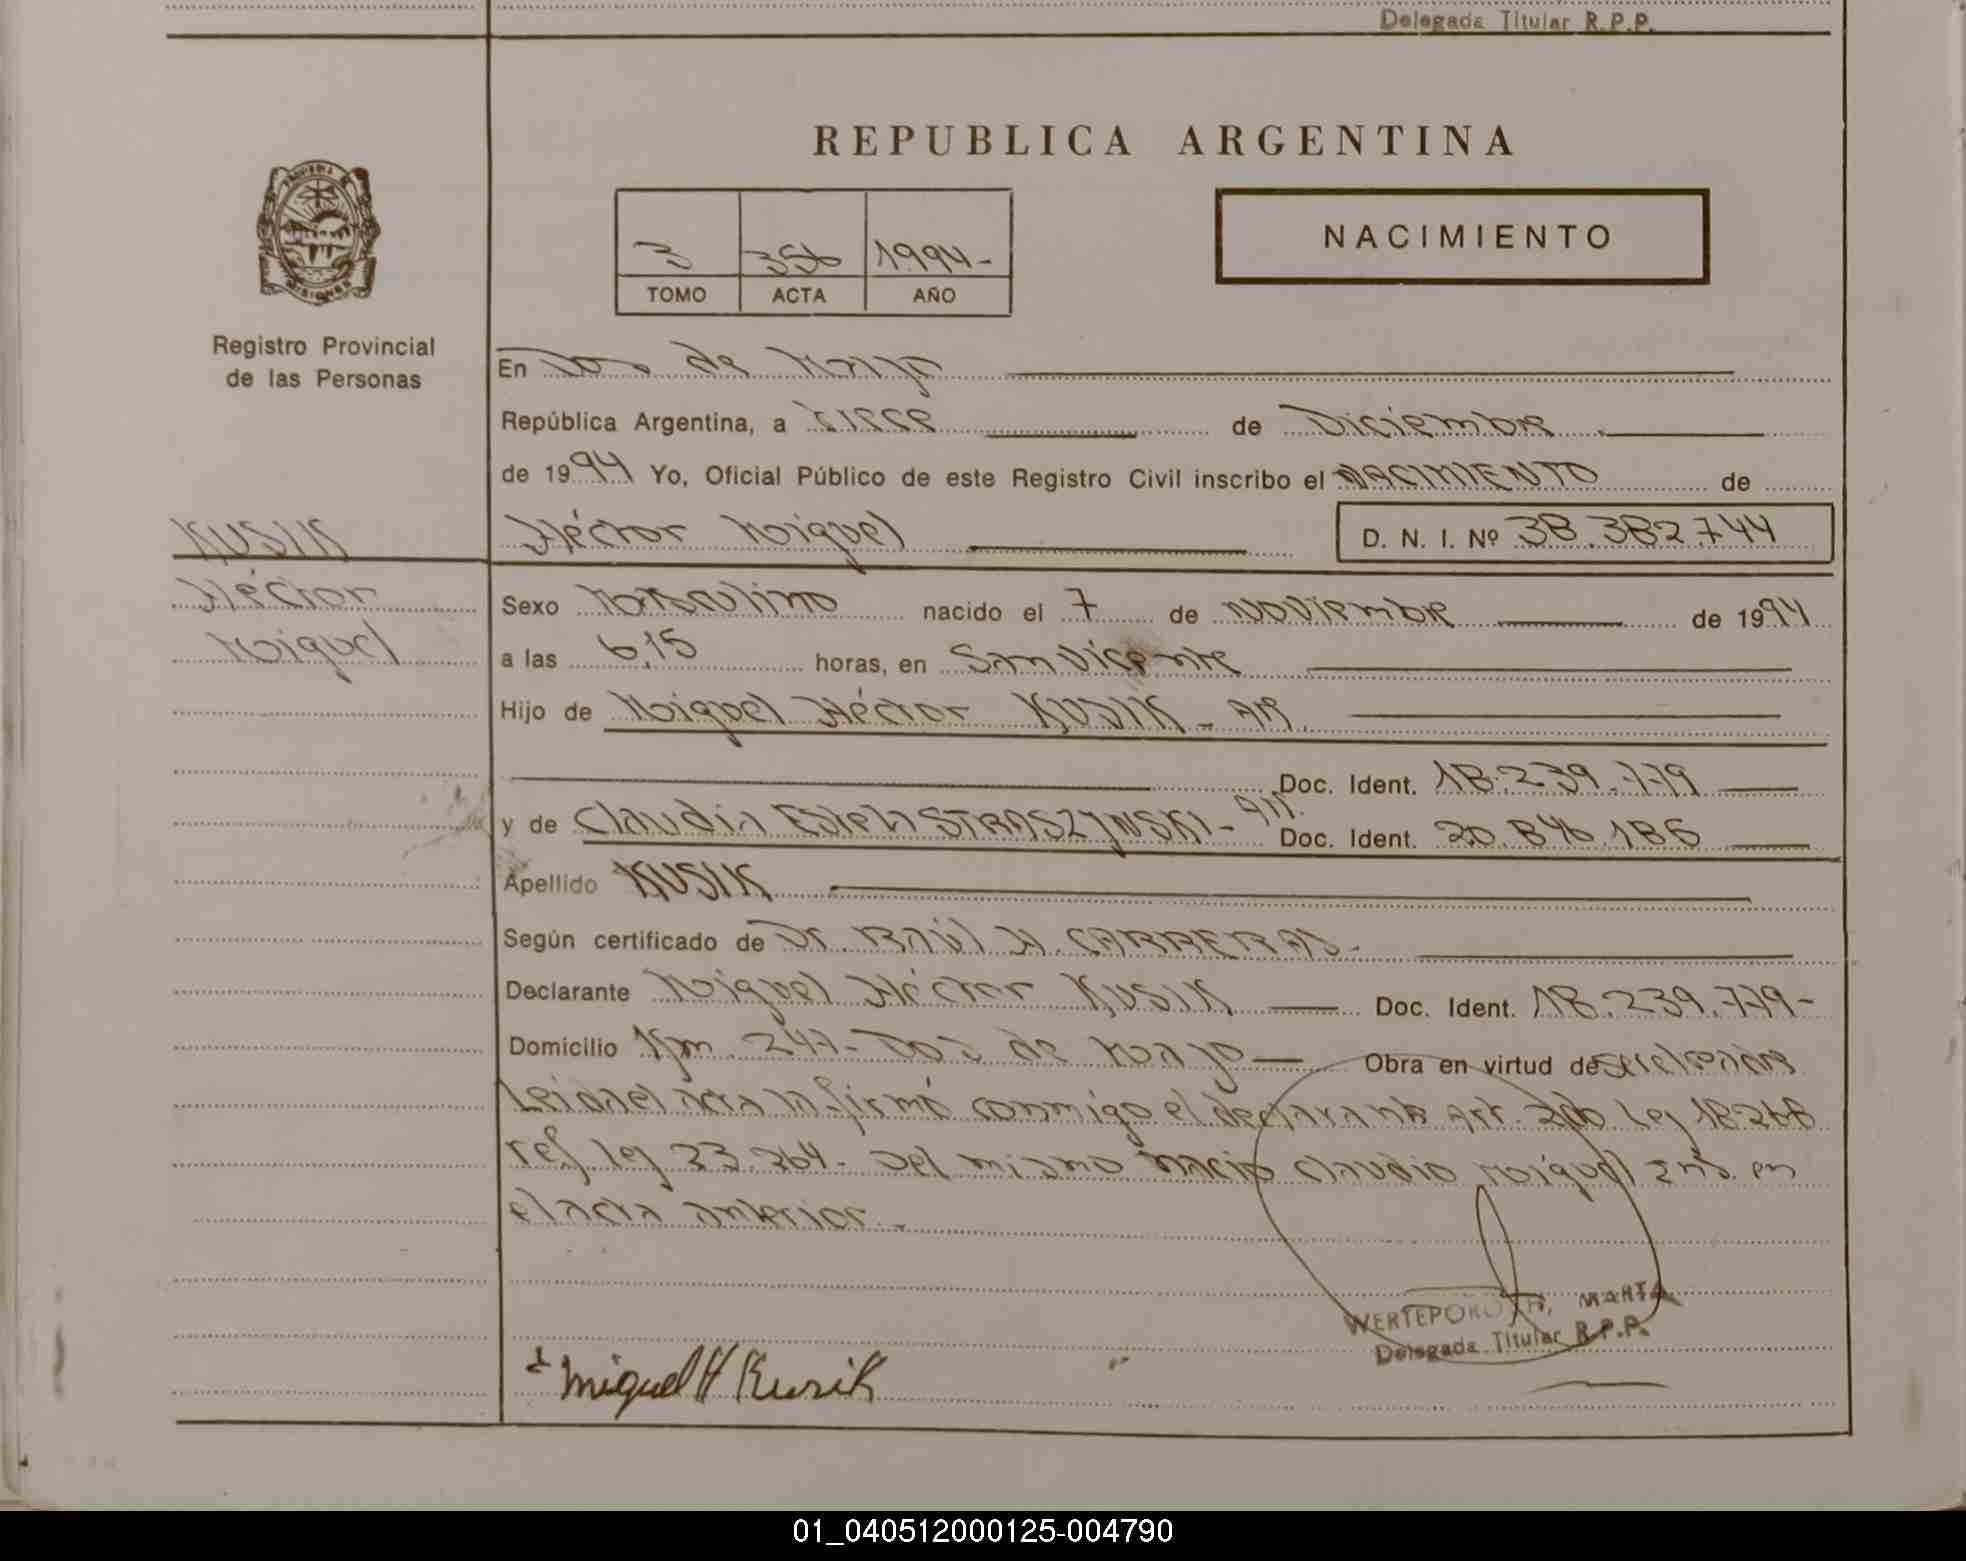 Delegada Titular R.P.P.
REPUBLICA ARGENTINA
NACIMIENTO
3 356 1994-
TOMO ACTA AÑO
Registro Provincial
de las Personas
En Dos de Mayo
República Argentina, a trece de Diciembre
de 1994 Yo, Oficial Público de este Registro Civil inscribo el NACIMIENTO de
KUSIK
Héctor Miguel D. N. I. Nº 38.382.744
Héctor
Miguel
Sexo Masculino nacido el 7 de Noviembre de 1994
a las 6,15 horas, en San Vicente
Hijo de Miguel Héctor KUSIK - AR.
Doc. Ident. 18.239.779
y de Claudia Estela STRASZYNSKI - AR. Doc. Ident. 20.846.186
Apellido KUSIK
Según certificado de Dr. Raúl H. CARRERAS-
Declarante Miguel Héctor KUSIK Doc. Ident. 18.239.779-
Domicilio Km. 247- Dos de Mayo Obra en virtud de
Leida el acta la firmó conmigo el declarante Art. 2do Ley 18268
ref. ley 23.264- Del mismo nació Claudio Miguel en
el acta anterior.-
WERTEPOROCH, MARTA
Delegada Titular R.P.P.
Miguel H Kusik
01_040512000125-004790